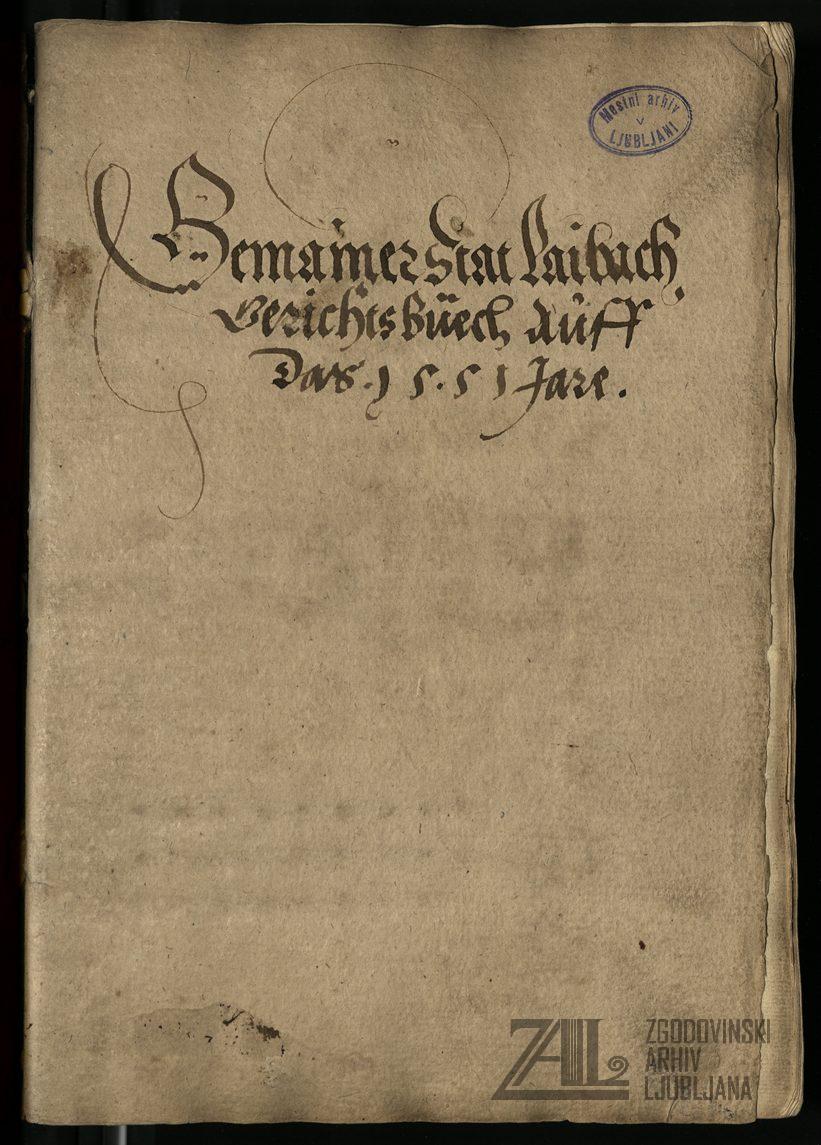 Mestni arhiv
v
LJUBLJANI
Gemainer Stat Laibach
Gerichtsbüech Auff
Das . 1 5 . 5 1 Jare .
ZAL
ZGODOVINSKI
ARHIV
LJUBLJANA